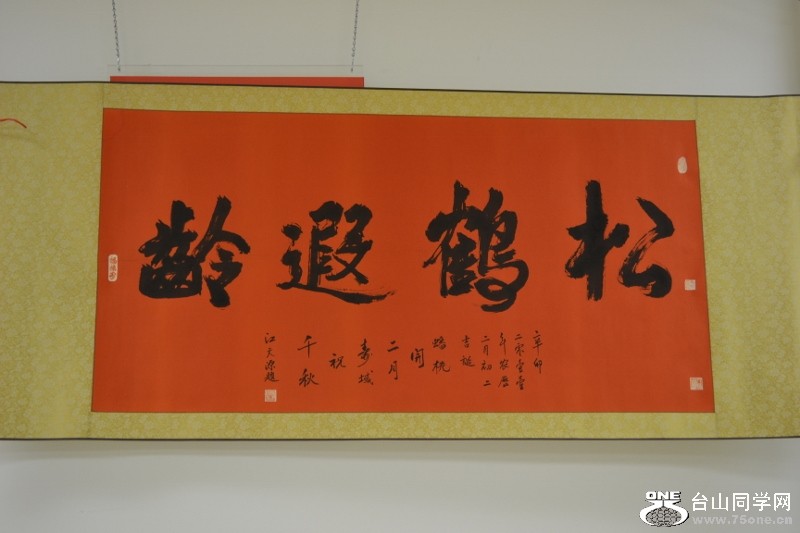 松鶴遐齡
辛卯
二零壹壹
年农曆
二月初二
吉誕
蟠桃
開
二月
壽城
祝
千秋
江
題
ONE
台山同学网
www.75one.cn